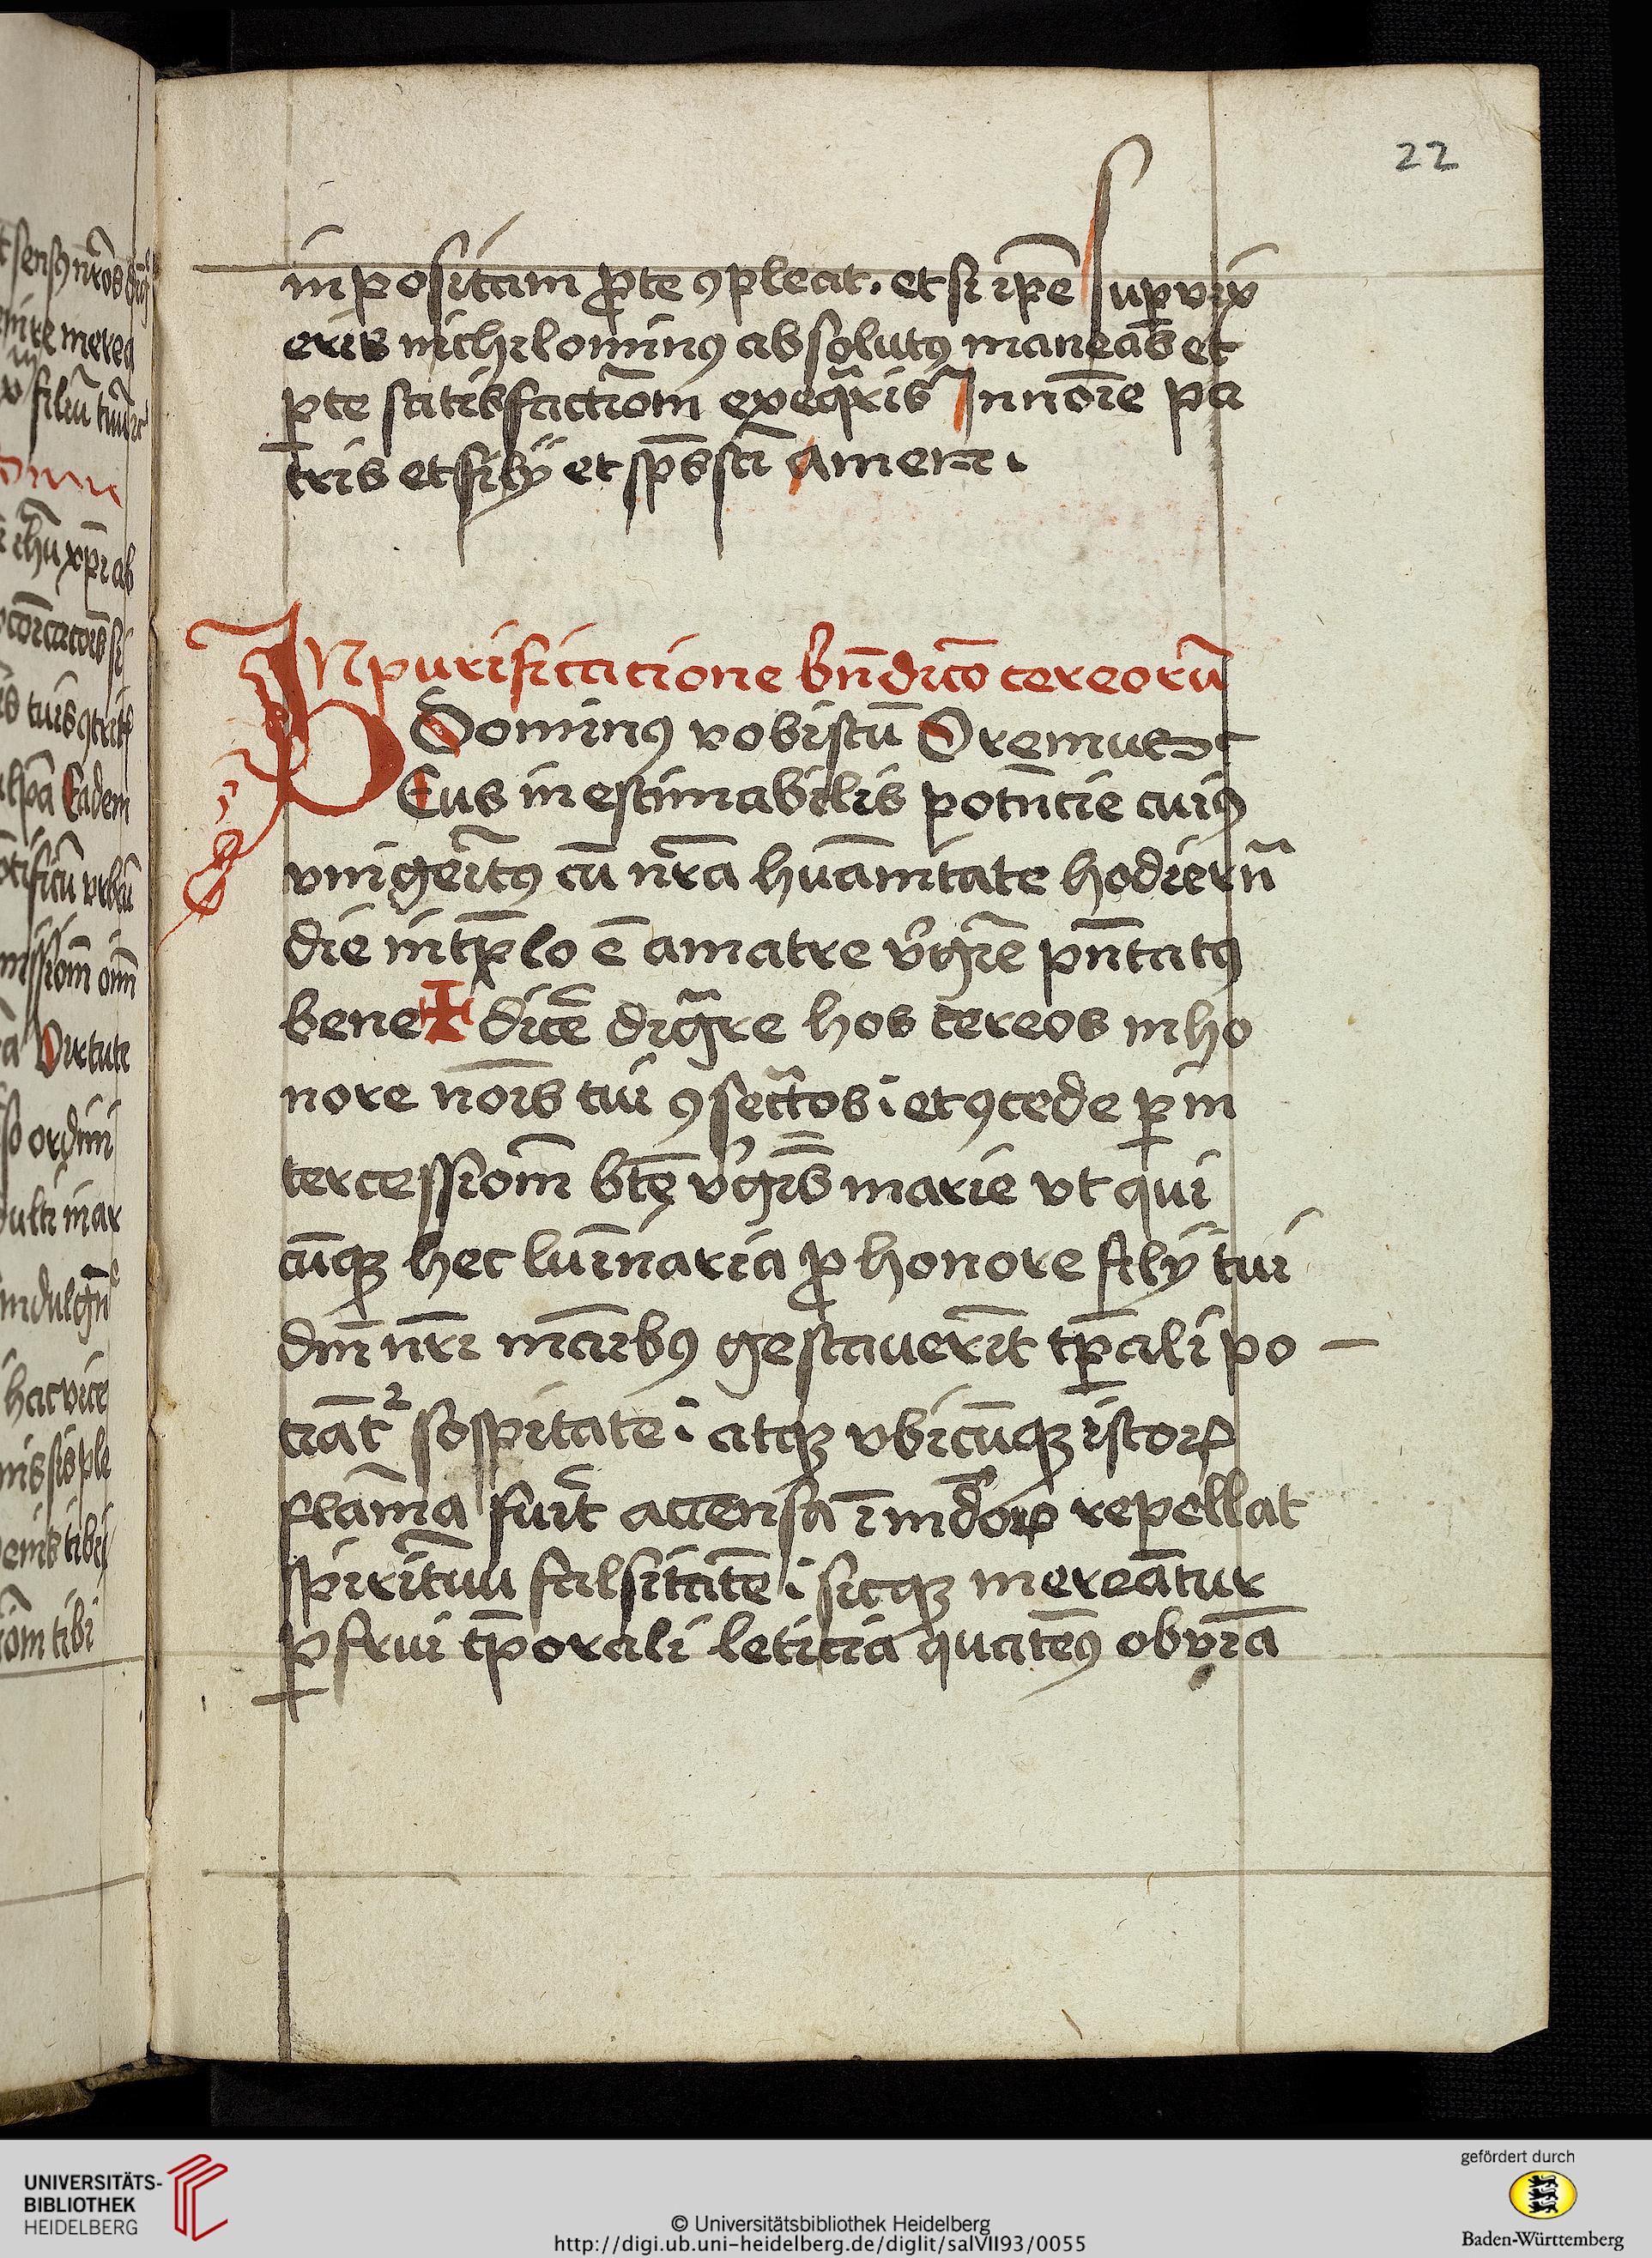 22
inpositam ꝓte ꝯpleat. et si ip̄e supvix
eris nichilominꝰ absolutꝰ maneas et
pte satisfactiōm exeqͣris In noīe pa
tris et filij et sp̄s sc̄i amen.
IN purificacione bn̄dicō cereorū
Dominꝰ vobiscū Oremus
DEus inestimabilis potn̄tie cuiꝰ
vnigēitꝰ cū nr̄a huāmtate hodiern̄
die in tp̄lo ē a matre v̓gīe pn̄tatꝰ
bene✠dicē dignͣre hos cereos in ho
nore nōis tui ꝯsecͣtos. et ꝯcede ꝑ in
tercessiōm btē v̓gīs marie vt qui
cūqꝫ hec luīnaria ꝓ honore filij tui
dn̄i nr̄i māibꝰ gestauerīt tꝑali po –
ciāt᷑ sospitate. atqꝫ vbicūqꝫ istoꝝ
flām̄a fuīt accensa īmūdoꝝ repellat
spirituu falsitatē. sicqꝫ mereātur
ꝑfrui tp̄orali leticia quatēꝰ obviā
UNIVERSITÄTS-
BIBLIOTHEK
HEIDELBERG
© Universitätsbibliothek Heidelberg
http://digi.ub.uni-heidelberg.de/diglit/salVII93/0055
gefördert durch
Baden-Württemberg